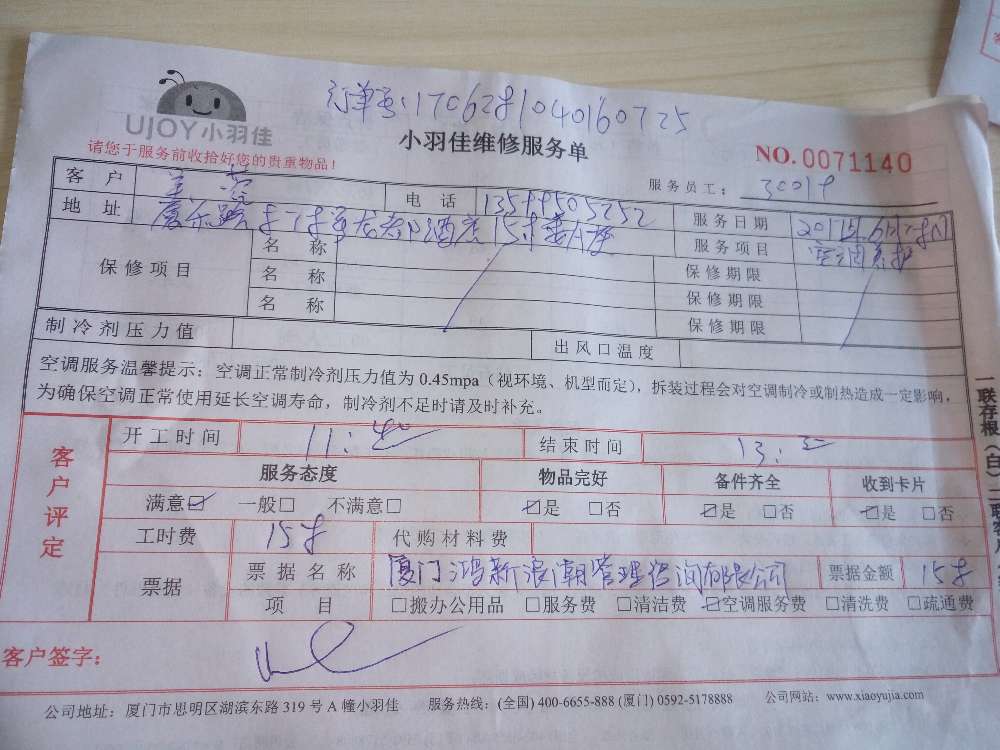 订单号:1706281040160725
UJOY小羽佳
小羽佳维修服务单
请您于服务前收拾好您的贵重物品!
NO.0071140
服务员工:
客 户
电 话
服务日期
地 址
服务项目
保修项目
名 称
保修期限
名 称
保修期限
名 称
保修期限
制冷剂压力值
出风口温度
空调服务温馨提示:空调正常制冷剂压力值为 0.45mpa(视环境、机型而定),拆装过程会对空调制冷或制热造成一定影响,
为确保空调正常使用延长空调寿命,制冷剂不足时请及时补充。
客户评定
开工时间
结束时间
服务态度 物品完好 备件齐全 收到卡片
满意☑ 一般□ 不满意□ ☑是 □否 ☑是 □否 ☑是 □否
工时费 158 代购材料费
票据
票据名称 厦门鸿新浪潮管理咨询有限公司 票据金额 158
项 目 □搬办公用品 □服务费 □清洁费 ☑空调服务费 □清洗费 □疏通费
客户签字:
公司地址:厦门市思明区湖滨东路 319 号 A 幢小羽佳 服务热线:(全国) 400-6655-888 (厦门) 0592-5178888 公司网站:www.xiaoyujia.com
一联存根(白)二联客